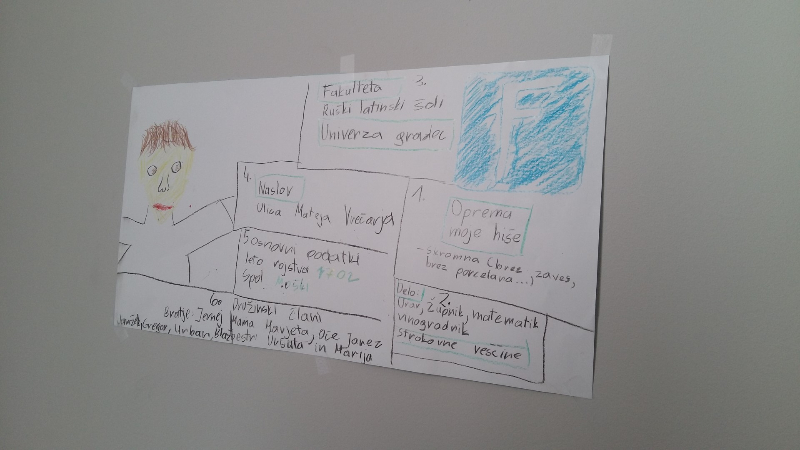 Fakulteta 3.
Ruški latinski šoli
Univerza gradec
F
4.
Naslov
Ulica Mateja Vrečarja
1.
Oprema
moje hiše
- skromna (brez zaves,
brez porcelana...)
5 osnovni podatki
leto rojstva 1702
Spol moški
Delo: 2.
Urar, župnik, matematik
vinogradnik
strokovne vescine
6.
Družinski člani
Mama Marjeta, Oče Janez
Bratje: Jernej
Gregor, Urban, Blaž
sestri Uršula in Marija